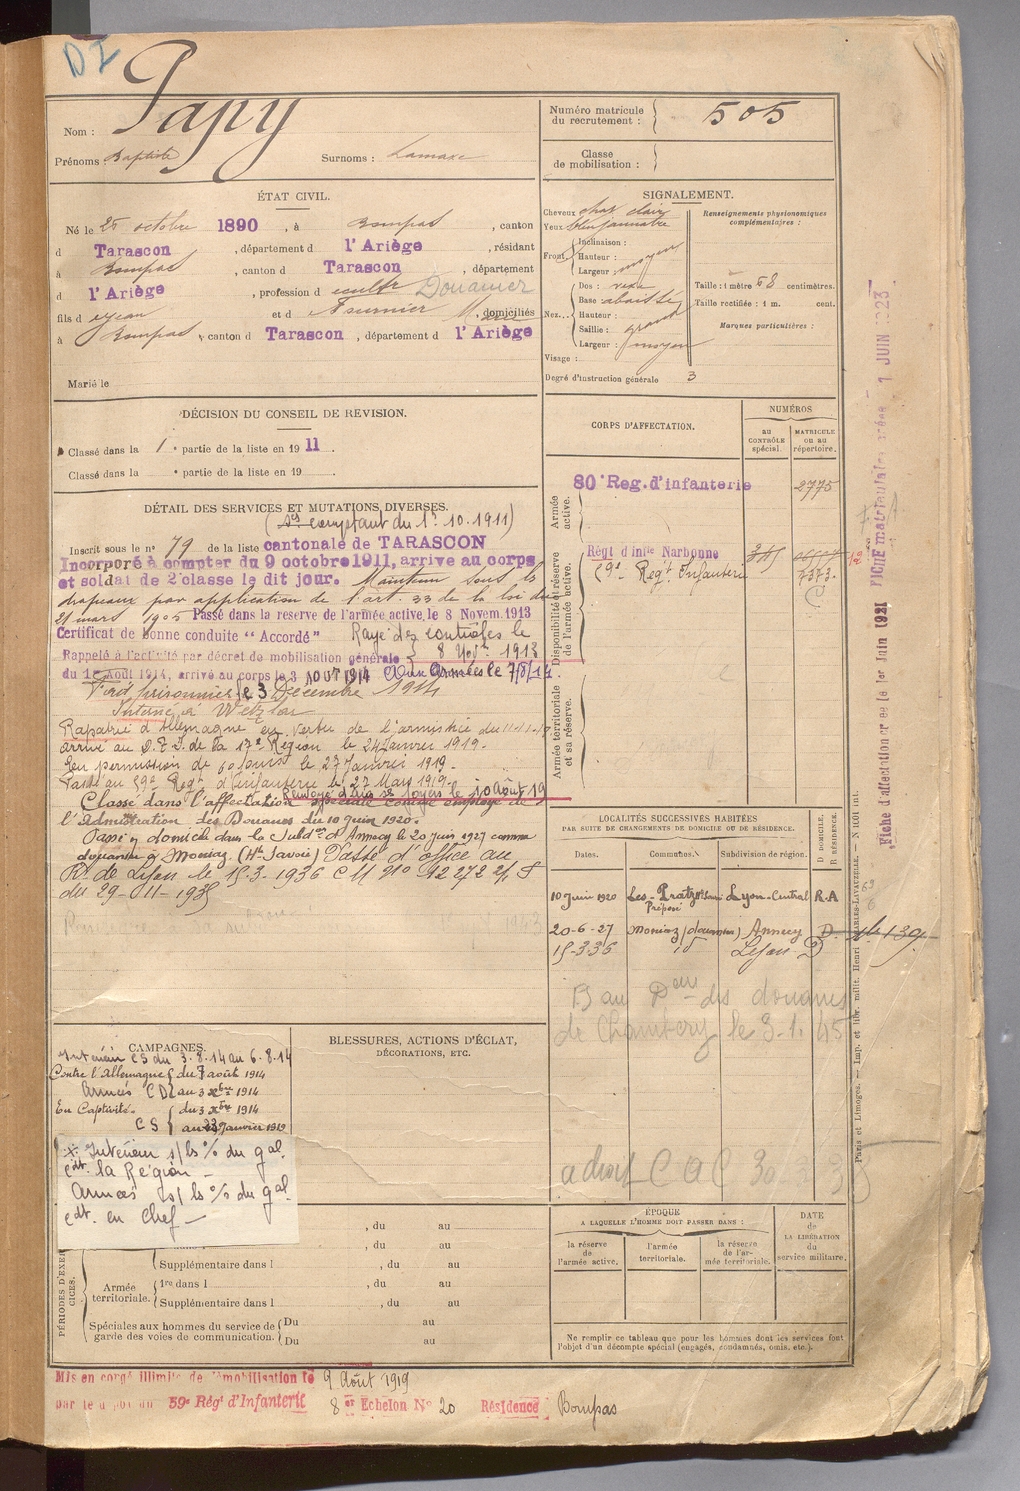 DI
Nom : Papy
Prénoms : Baptiste
Surnoms : Lamare
Numéro matricule du recrutement : 505
Classe de mobilisation :
ÉTAT CIVIL.
Né le 25 octobre 1890, à Bompas, canton
d Tarascon, département d l'Ariège, résidant
à Bompas, canton d Tarascon, département
d l'Ariège, profession d Douanier
fils d et d domiciliés
à Bompas, canton d Tarascon, département d l'Ariège
Marié le
SIGNALEMENT.
Cheveux chat clair
Yeux
Front
Inclinaison :
Hauteur :
Largeur moyen
Nez
Dos :
Base abaissée
Hauteur :
Saillie : grand
Largeur : moyen
Visage :
Degré d'instruction générale 3
Renseignements physionomiques complémentaires :
Taille : 1 mètre 68 centimètres.
Taille rectifiée : 1 m. cent.
Marques particulières :
DÉCISION DU CONSEIL DE REVISION.
Classé dans la 1e partie de la liste en 1911.
Classé dans la e partie de la liste en 19
CORPS D'AFFECTATION.
NUMÉROS
au CONTRÔLE spécial.
MATRICULE OU AU répertoire.
Armée active.
80e Reg. d'infanterie 2775
Disponibilité et réserve de l'armée active.
Régt d'infie Narbonne
Regt Infanterie 7373.
Armée territoriale et sa réserve.
DÉTAIL DES SERVICES ET MUTATIONS DIVERSES.
comptant du 1r. 10. 1911)
Inscrit sous le no 79 de la liste cantonale de TARASCON
Incorporé à compter du 9 octobre 1911, arrivé au corps
et soldat de 2e classe le dit jour. Maintenu sous les
drapeaux par application de l'art. 33 de la loi du
21 mars 1905 Passé dans la reserve de l'armée active, le 8 Novem. 1913
Certificat de bonne conduite "Accordé" Rayé des contrôles le
8 Novre 1913
Rappelé à l'activité par décret de mobilisation générale
du 1er Août 1914, arrivé au corps le 3 AOUT 1914 Aux Armées le 7/8/14.
Fait prisonnier le 3 Décembre 1914
Interné à Wetzlar
Rapatrié d'Allemagne en vertu de l'armistice du
arrivé au de la 17e Région le 24 Janvier 1919.
En permission de jours le 27 Janvier 1919.
Passé au 59e Regt d'Infanterie le 27 Mars 1919.
Renvoyé dans ses foyers le 10 Août 19
Classé dans l'affectation spéciale comme employé de
l'Admistration des Douanes du 10 juin 1920.
Passé domicile dans la Subdon d'Annecy le 20 juin 1927 comme
douanier à Moniaz (Hte Savoie) Passé d'office au
R. de Lyon le 15-3-1936 CM No 12272
du 29-11-1935
LOCALITÉS SUCCESSIVES HABITÉES
PAR SUITE DE CHANGEMENTS DE DOMICILE OU DE RÉSIDENCE.
Dates.
Communes.
Subdivision de région.
D DOMICILE, R RÉSIDENCE.
10 Juin 1920 Les Pratz Lyon-Central R.A
Préposé
20-6-27 Moniaz (douanier) Annecy D.
15-3-36 id Lyon D
B au Don des douanes
de Chambéry le 3-1.45
CAMPAGNES.
Intérieur CS du 3.8.14 au 6.8.14
Contre l'Allemagne du 7 août 1914
Armées CD au 3 Xbre 1914
En Captivité. du 3 Xbre 1914
CS au Janvier 1919
Intérieur s/ls % du gal.
cdt. la Région
Armées s/ls % du gal.
cdt. en chef
BLESSURES, ACTIONS D'ÉCLAT, DÉCORATIONS, ETC.
PÉRIODES D'EXERCICES.
, du au
, du au
Supplémentaire dans l , du au
Armée territoriale.
1re dans l , du au
Supplémentaire dans l , du au
Spéciales aux hommes du service de garde des voies de communication.
Du au
Du au
ÉPOQUE
A LAQUELLE L'HOMME DOIT PASSER DANS :
la réserve de l'armée active.
l'armée territoriale.
la réserve de l'armée territoriale.
DATE de LA LIBÉRATION du service militaire.
Ne remplir ce tableau que pour les hommes dont les services font
l'objet d'un décompte spécial (engagés, condamnés, omis, etc.).
Mis en congé illimité de démobilisation le 9 Août 1919
par le dépôt du 59e Régt d'Infanterie 8er Échelon No 20 Résidence Bompas
Fiche d'affectation créée le 1er Juin 1921 FICHE matriculaire créée 1 JUIN 1923
Paris et Limoges. — Imp. et libr. milit. Henri CHARLES-LAVAUZELLE.